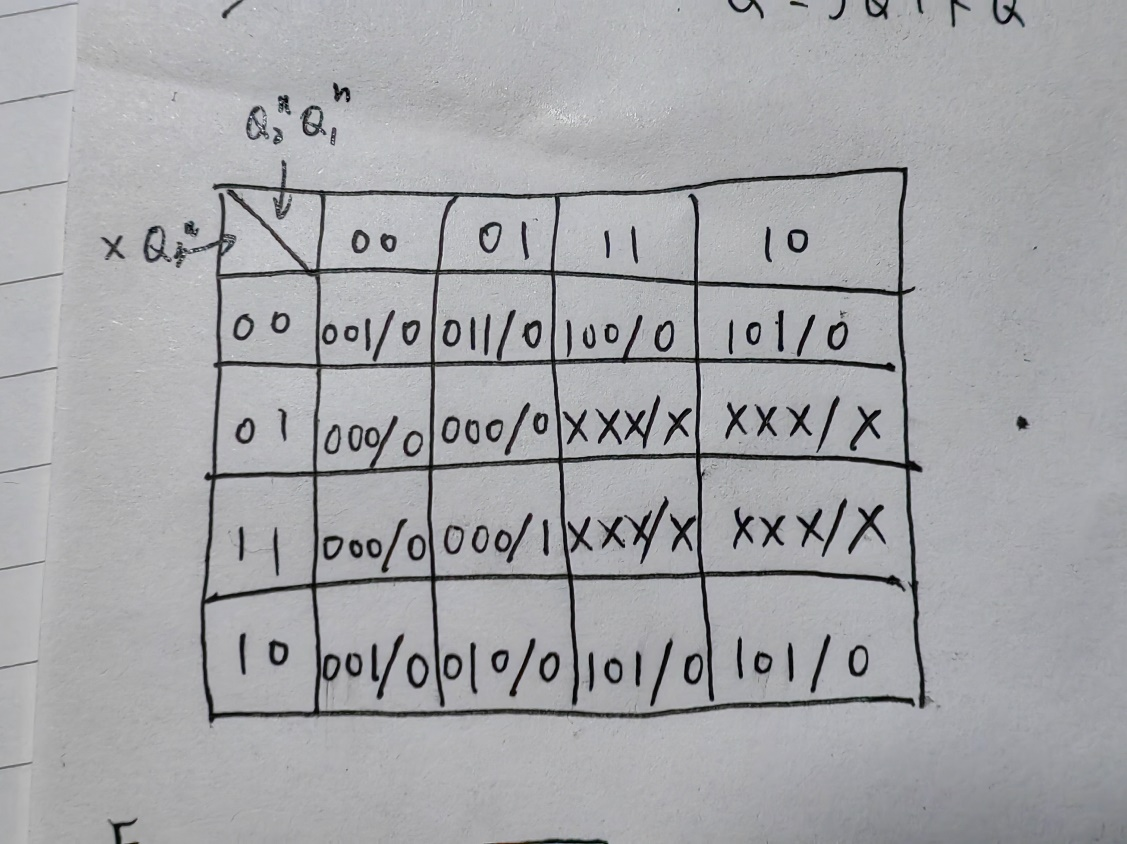 Q₂ⁿ Q₁ⁿ
X Q₃ⁿ
00 01 11 10
00 001/0 011/0 100/0 101/0
01 000/0 000/0 XXX/X XXX/X
11 000/0 000/1 XXX/X XXX/X
10 001/0 010/0 101/0 101/0